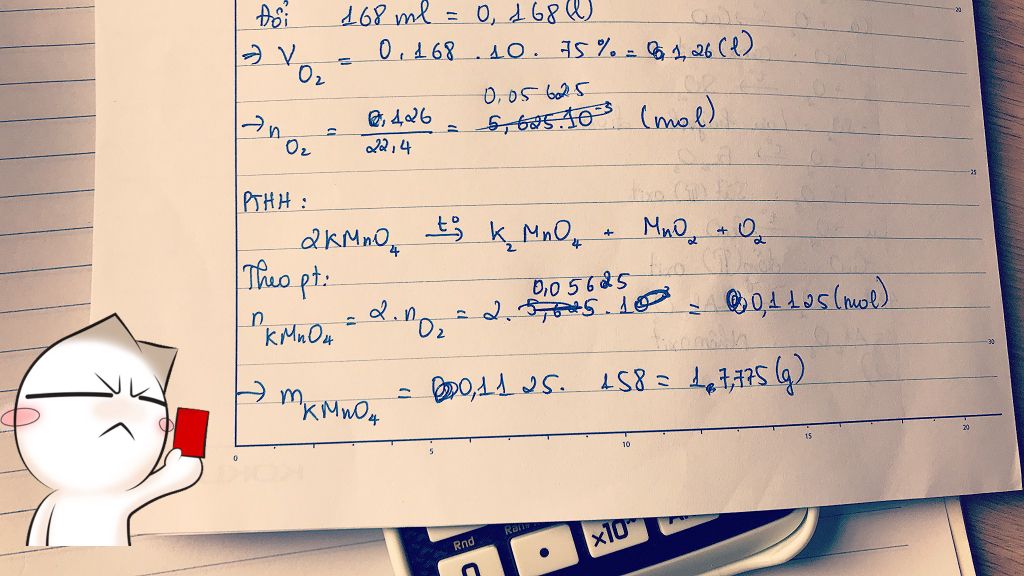 Đổi 168 ml = 0,168 (l)
→ V O₂ = 0,168 . 10 . 75 % = 1,26 (l)
0,05625
→ n O₂ = 1,26 / 22,4 = 5,625.10⁻³ (mol)
PTHH :
2KMnO₄ t° → K₂MnO₄ + MnO₂ + O₂
Theo pt:
0,05625
n KMnO₄ = 2 . n O₂ = 2 . 5,625 . 10⁻³ = 0,1125 (mol)
→ m KMnO₄ = 0,1125 . 158 = 17,775 (g)
0 5 10 15 20
20
25
30
Rnd
0 . ×10